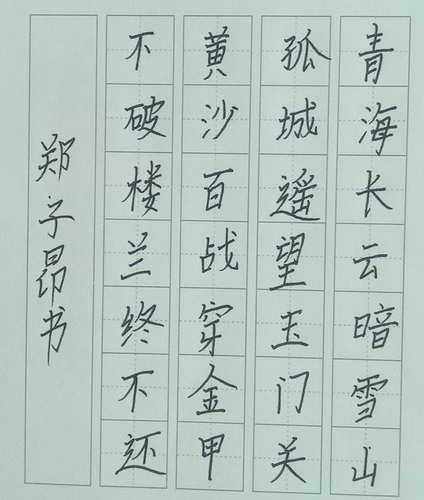 青海长云暗雪山
孤城遥望玉门关
黄沙百战穿金甲
不破楼兰终不还
郑子昂书